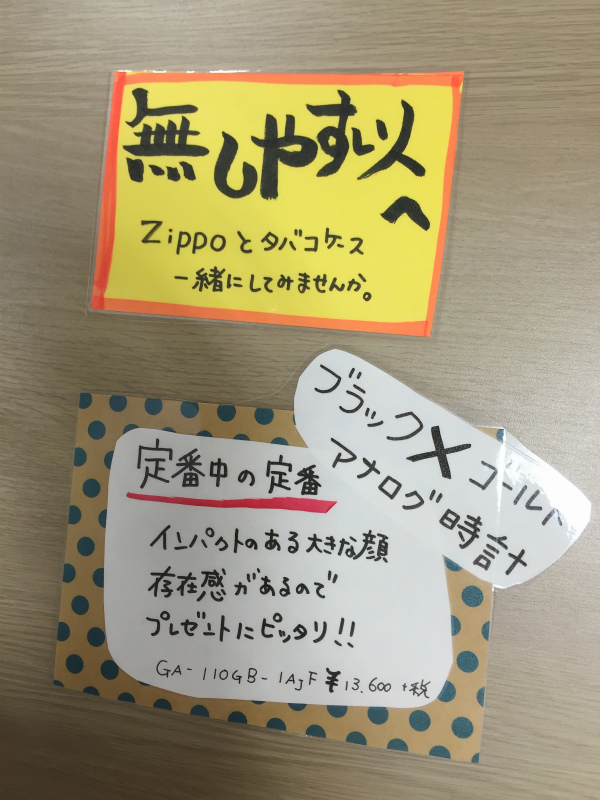 無しやすい人
へ
Zippoとタバコケース
一緒にしてみませんか。
ブラック×ゴールド
アナログ時計
定番中の定番
インパクトのある大きな顔
存在感があるので
プレゼントにピッタリ!!
GA-110GB-1AJF ¥13,600+税